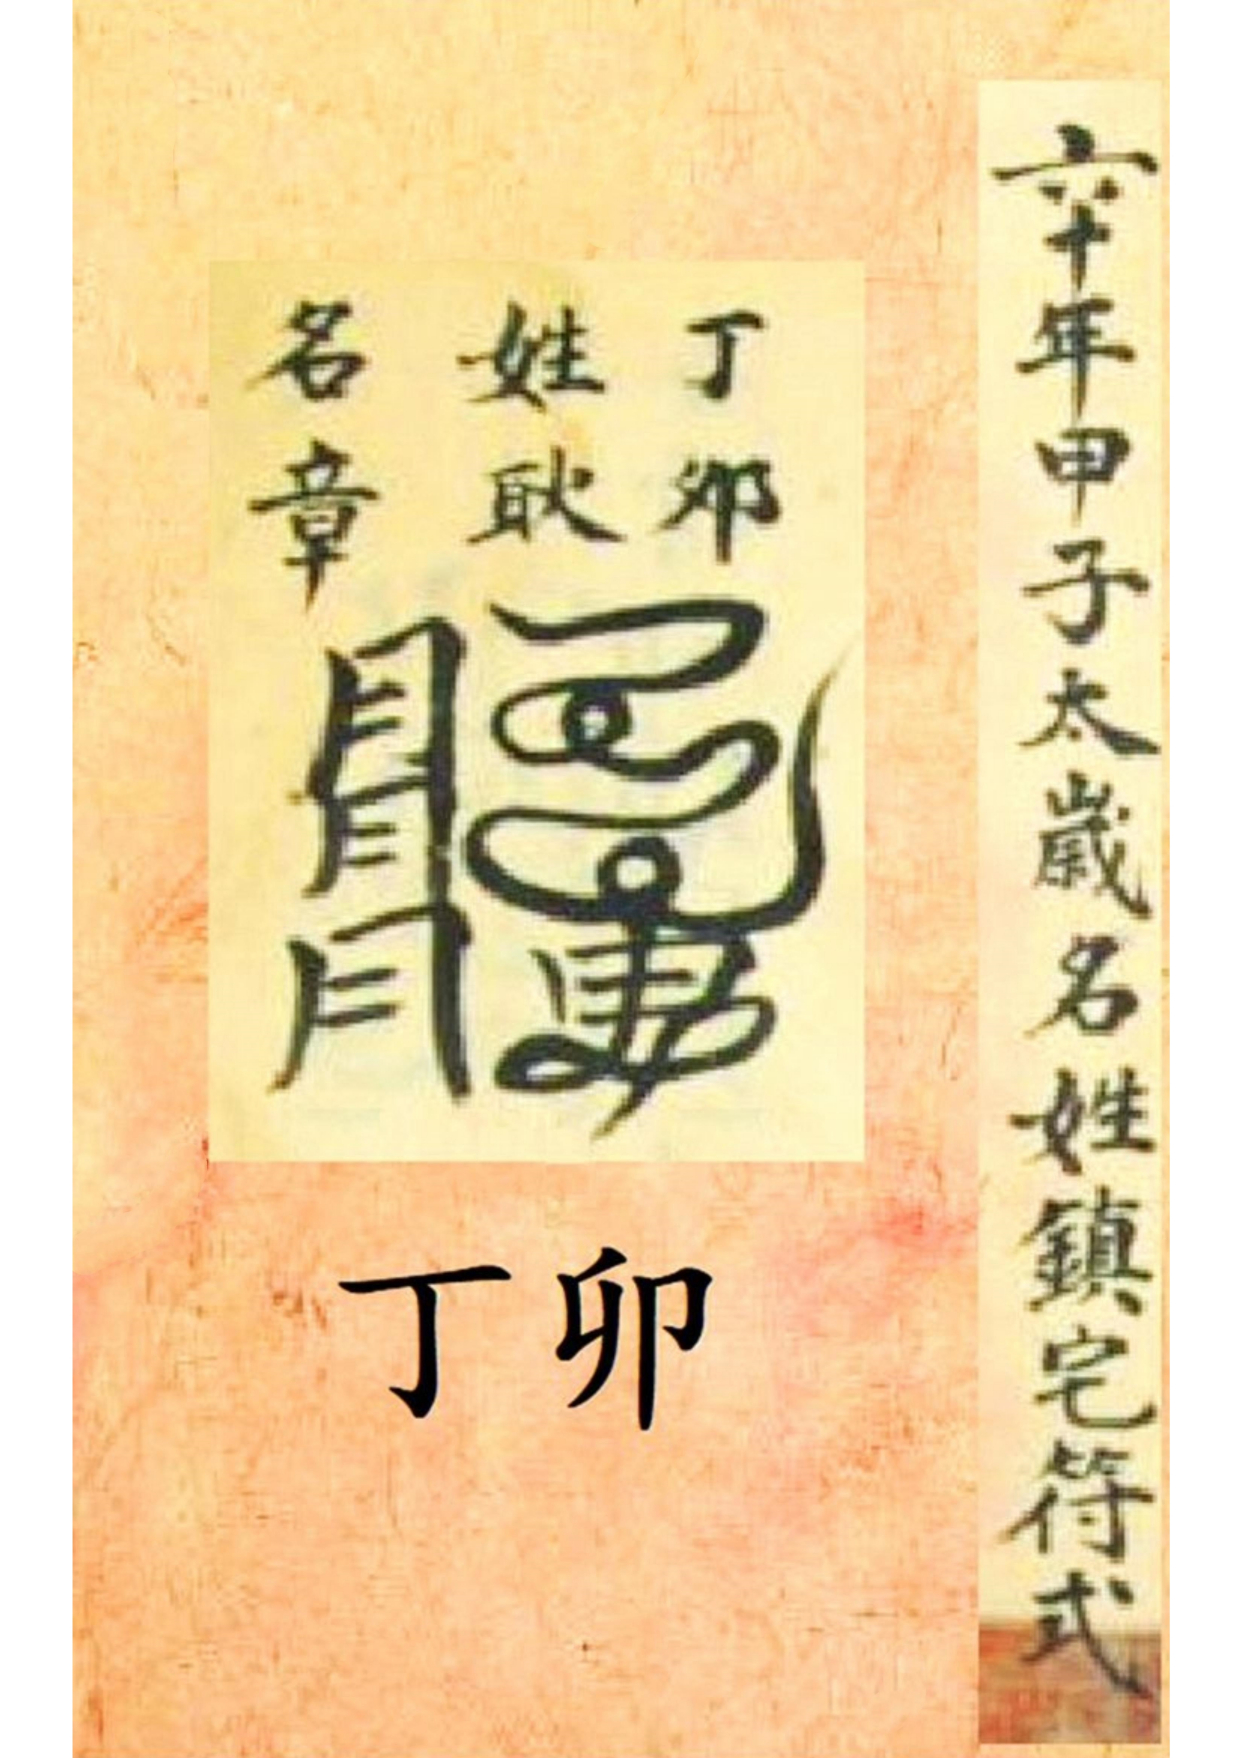 六十年甲子太歲名姓鎮宅符式
丁卯
姓耿
名章
丁卯